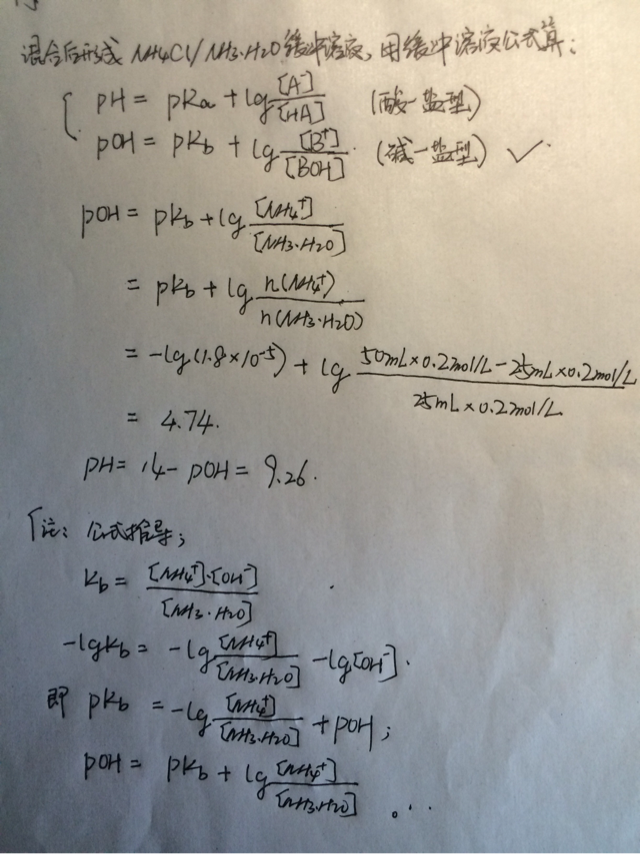 混合后形成 NH4Cl/NH3·H2O缓冲溶液, 用缓冲溶液公式算:
{ pH = pKa + lg [A⁻]/[HA] (酸一盐型)
pOH = pKb + lg [B⁺]/[BOH]. (碱一盐型) ✓.
pOH = pKb + lg [NH4⁺]/[NH3·H2O]
= pKb + lg n(NH4⁺)/n(NH3·H2O)
= -lg(1.8×10⁻⁵) + lg (50mL×0.2mol/L - 25mL×0.2mol/L)/(25mL×0.2mol/L)
= 4.74.
pH = 14 - pOH = 9.26.
「注: 公式推导;
Kb = [NH4⁺]·[OH⁻]/[NH3·H2O]
-lgKb = -lg [NH4⁺]/[NH3·H2O] - lg[OH⁻].
即 pKb = -lg [NH4⁺]/[NH3·H2O] + pOH;
pOH = pKb + lg [NH4⁺]/[NH3·H2O] 。..